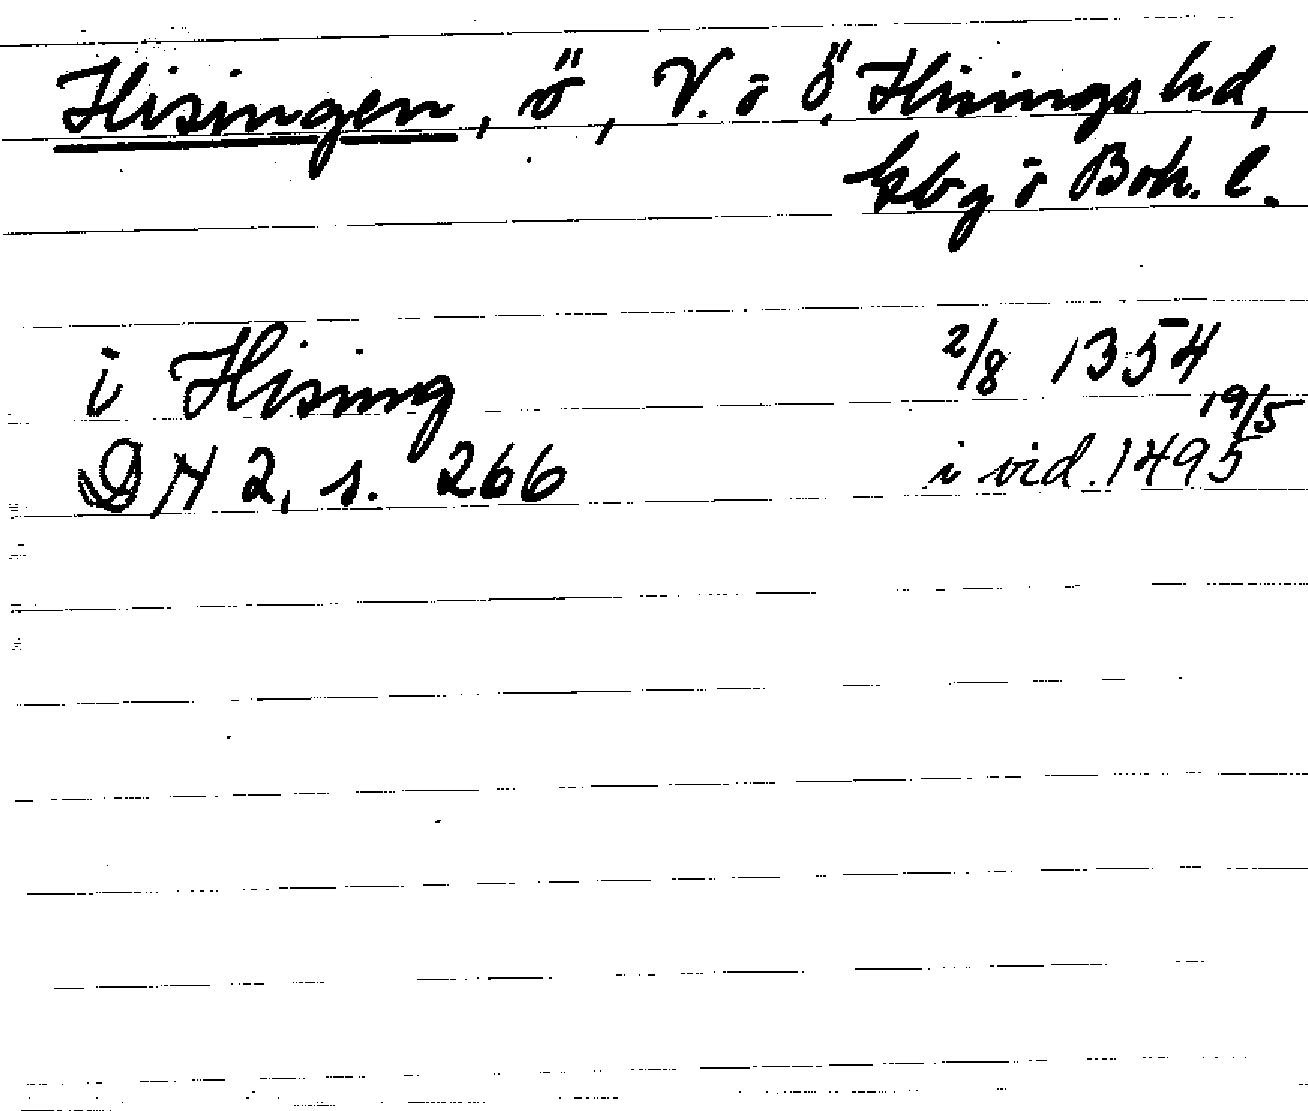 Hisingen, ö, V. o Ö. Hisings hd,
Gbg o Boh. l.
i Hising 2/8 1354
DN 2, s. 266 i vid. 1495 19/5